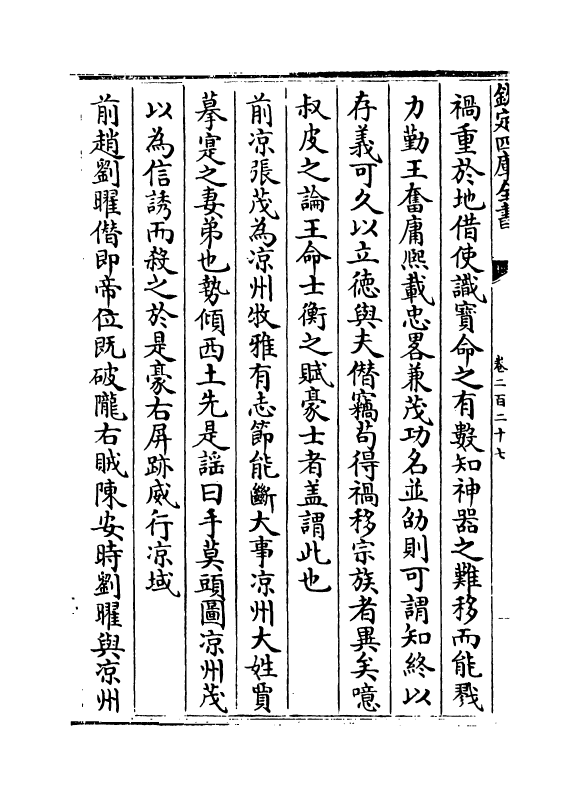 欽定四庫全書
卷二百二十七
禍重於地借使識寶命之有數知神器之難移而能戮
力勤王奮庸熙載忠畧兼茂功名並劭則可謂知終以
存義可久以立徳與夫僭竊茍得禍移宗族者異矣噫
叔皮之論王命士衡之賦豪士者盖謂此也
前凉張茂為凉州牧雅有志節能斷大事凉州大姓賈
摹寔之妻弟也勢傾西土先是謡曰手莫頭圖凉州茂
以為信誘而殺之於是豪右屏跡威行凉域
前趙劉曜僭即帝位既破隴右賊陳安時劉曜與凉州